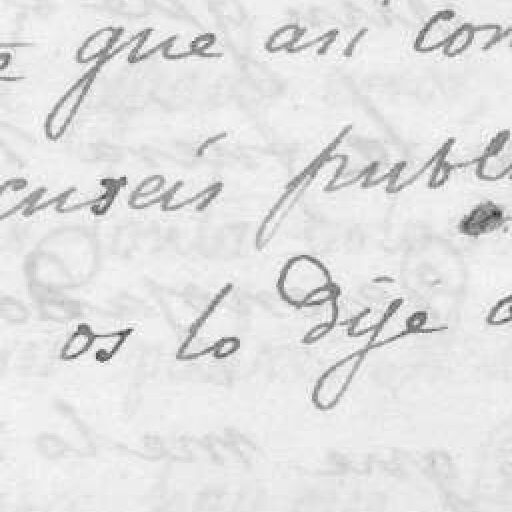 que así con
cuseis publi
os lo dije